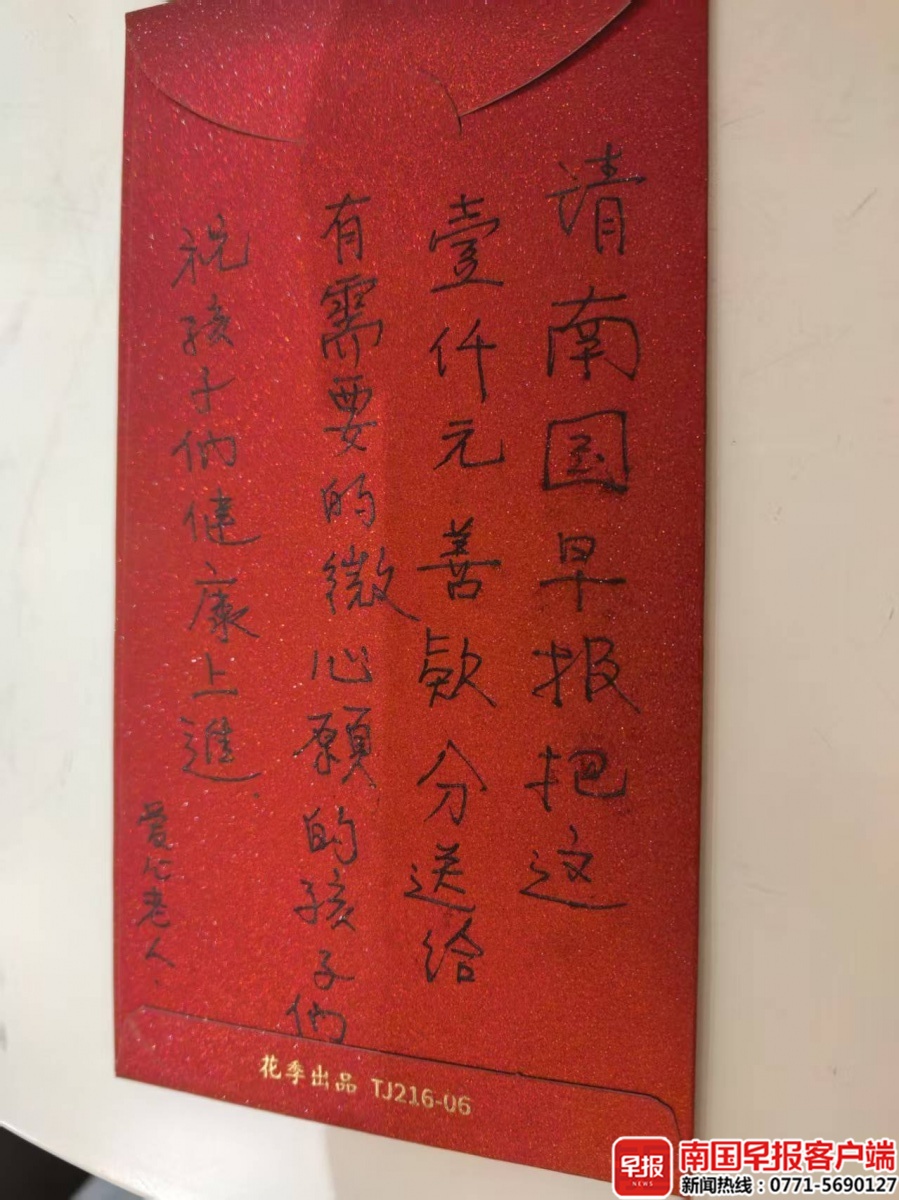 请南国早报把这
壹仟元善款分送给
有需要的微心愿的孩子们
祝孩子们健康上進
爱心老人.
花季出品 TJ216-06
早报
NEWS
南国早报客户端
新闻热线：0771-5690127